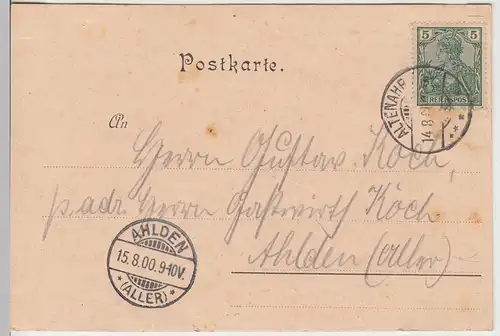 5 5
REICHSPOST
ALTENAHR
14.8.
Postkarte.
An
Herrn Gustav Koch,
p. adr. Herrn Gastwirth Köch
Ahlden (Aller)
AHLDEN
15.8.00.9-10V.
* (ALLER) *